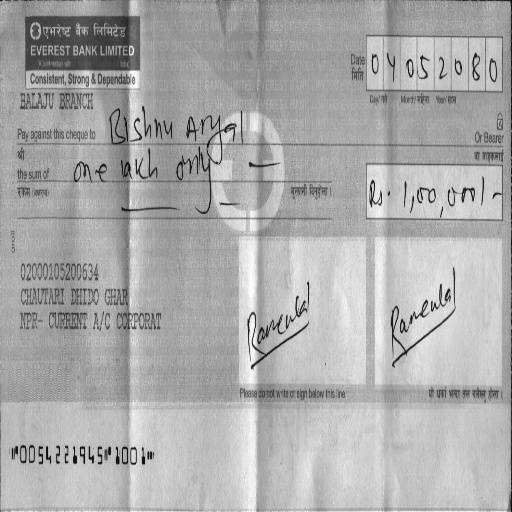 एभरेष्ट बैंक लिमिटेड
EVEREST BANK LIMITED
Consistent, Strong & Dependable
BALAJU BRANCH
Date
मिति
04052080
Day/ गते Month/ महिना Year/ साल
Pay against this cheque to Bishnu Aryal
श्री
Or Bearer
वा वाहकलाई
the sum of one lakh only
रकम (अक्षरुपी)
भुक्तानी दिनुहोला ।
Rs. 1,00,000/-
02000105200634
CHAUTARI DHIDO GHAR
NPR- CURRENT A/C CORPORAT
Please do not write or sign below this line
"005422194511001"